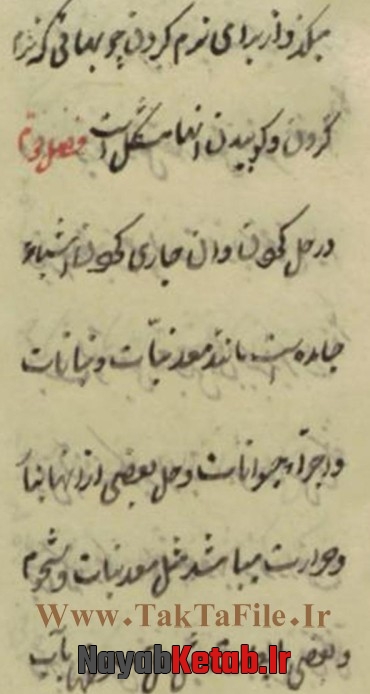 میکند و از برای نرم کردن چوبهائی که نرم
کردن و کوبیدن انها مشکل است فصل دوم
در حل کردن و ان جاری کردن اشیاء
جامده است مانند معدنیات و نباتات
و اجزاء حیوانات و حل بعضی از انها بنار
و حرارت میباشد مثل معدنیات و شحوم
WWW.TAKTAFILE.IR
و بعضی بآب
NayabKetab.Ir